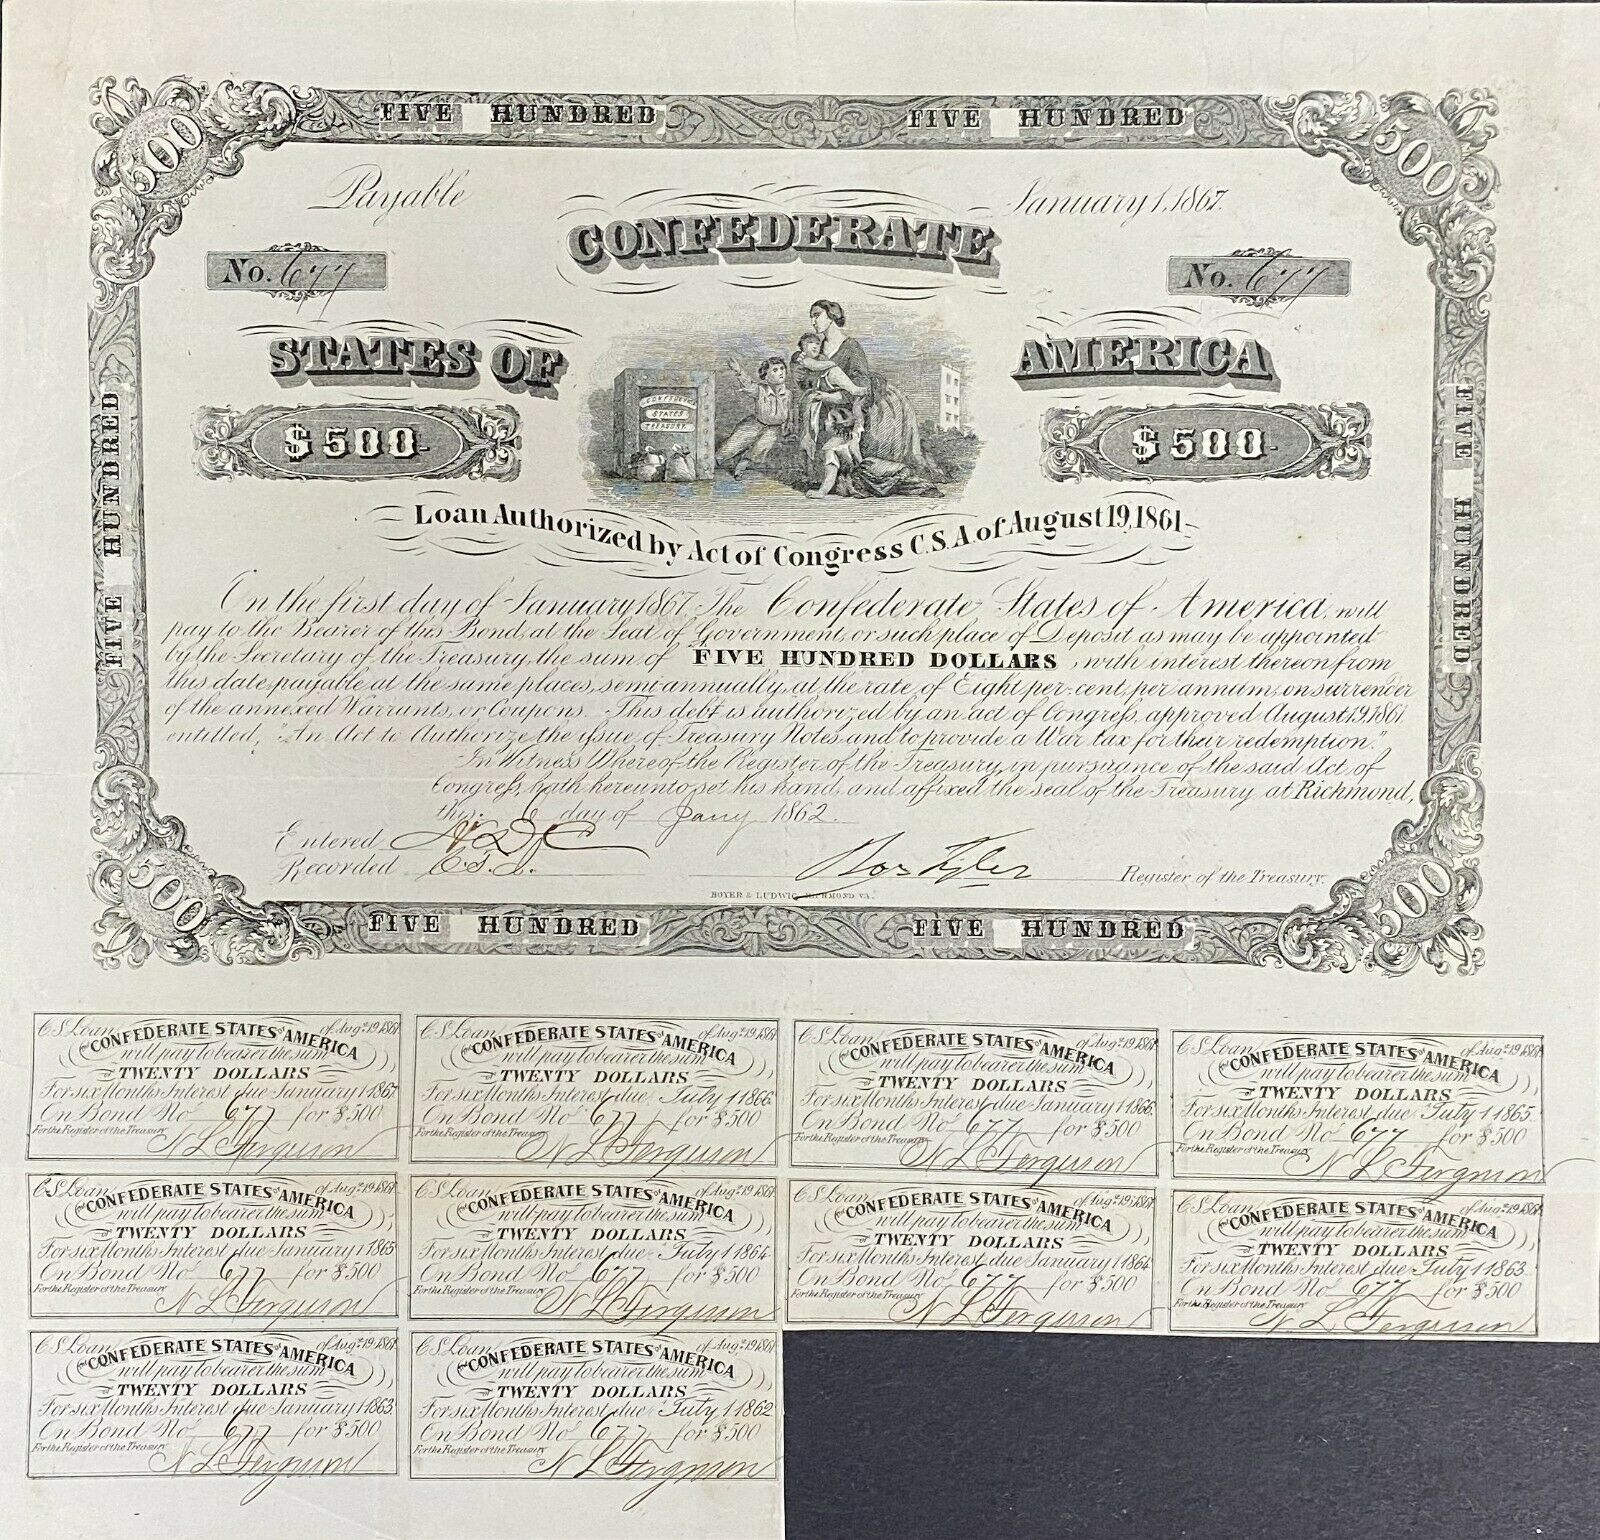 FIVE HUNDRED FIVE HUNDRED
500 500
Payable January 1, 1867.
CONFEDERATE
No. 677 No. 677
STATES OF AMERICA
CONFEDER
STATES
TREASURY
$500 $500
FIVE HUNDRED
FIVE HUNDRED
Loan Authorized by Act of Congress C.S.A of August 19, 1861
On the first day of January 1867. The Confederate States of America, will
pay to the Bearer of this Bond, at the Seat of Government, or such place of Deposit as may be appointed
by the Secretary of the Treasury, the sum of FIVE HUNDRED DOLLARS, with interest thereon from
this date, payable at the same places, semi-annually, at the rate of Eight per-cent, per annum, on surrender
of the annexed Warrants, or Coupons. This debt is authorized by an act of Congress, approved August 19, 1861
entitled, "An Act to Authorize the issue of Treasury Notes, and to provide a War tax for their redemption."
In Witness Whereof the Register of the Treasury, in pursuance of the said Act of
Congress, hath hereunto set his hand, and affixed the seal of the Treasury at Richmond,
this 6 day of Jany 1862.
Entered
Recorded
Robt Tyler Register of the Treasury.
BOYER & LUDWIG, RICHMOND VA.
500 500
FIVE HUNDRED FIVE HUNDRED
C S Loan of Aug: 19 1861
THE CONFEDERATE STATES OF AMERICA
will pay to bearer the sum
OF TWENTY DOLLARS
For six Months Interest due January 1 1867.
On Bond No 677 for $500
For the Register of the Treasury
N L Ferguson
C S Loan of Aug: 19 1861
THE CONFEDERATE STATES OF AMERICA
will pay to bearer the sum
OF TWENTY DOLLARS
For six Months Interest due July 1 1866.
On Bond No 677 for $500
For the Register of the Treasury
N L Ferguson
C S Loan of Aug: 19 1861
THE CONFEDERATE STATES OF AMERICA
will pay to bearer the sum
OF TWENTY DOLLARS
For six Months Interest due January 1 1866.
On Bond No 677 for $500
For the Register of the Treasury
N L Ferguson
C S Loan of Aug: 19 1861
THE CONFEDERATE STATES OF AMERICA
will pay to bearer the sum
OF TWENTY DOLLARS
For six Months Interest due July 1 1865.
On Bond No 677 for $500
For the Register of the Treasury
N L Ferguson
C S Loan of Aug: 19 1861
THE CONFEDERATE STATES OF AMERICA
will pay to bearer the sum
OF TWENTY DOLLARS
For six Months Interest due January 1 1865
On Bond No 677 for $500
For the Register of the Treasury
N L Ferguson
C S Loan of Aug: 19 1861
THE CONFEDERATE STATES OF AMERICA
will pay to bearer the sum
OF TWENTY DOLLARS
For six Months Interest due July 1 1864
On Bond No 677 for $500
For the Register of the Treasury
N L Ferguson
C S Loan of Aug: 19 1861
THE CONFEDERATE STATES OF AMERICA
will pay to bearer the sum
OF TWENTY DOLLARS
For six Months Interest due January 1 1864
On Bond No 677 for $500
For the Register of the Treasury
N L Ferguson
C S Loan of Aug: 19 1861
THE CONFEDERATE STATES OF AMERICA
will pay to bearer the sum
OF TWENTY DOLLARS
For six Months Interest due July 1 1863
On Bond No 677 for $500
For the Register of the Treasury
N L Ferguson
C S Loan of Aug: 19 1861
THE CONFEDERATE STATES OF AMERICA
will pay to bearer the sum
OF TWENTY DOLLARS
For six Months Interest due January 1 1863
On Bond No 677 for $500
For the Register of the Treasury
N L Ferguson
C S Loan of Aug: 19 1861
THE CONFEDERATE STATES OF AMERICA
will pay to bearer the sum
OF TWENTY DOLLARS
For six Months Interest due July 1 1862
On Bond No 677 for $500
For the Register of the Treasury
N L Ferguson